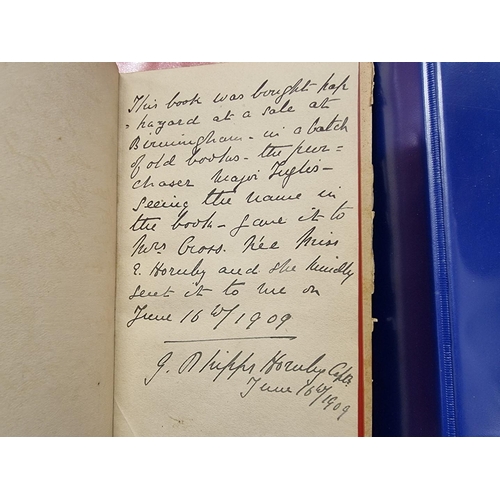 This book was bought hap
hazard at a sale at
Birmingham - in a batch
of old books - the pur-
chaser Major Inglis -
seeing the name in
the book - gave it to
Mrs Cross. Née Miss
E. Hornby and she kindly
sent it to me on
June 16th/1909
G. Phipps Hornby Capt.
June 16th/1909